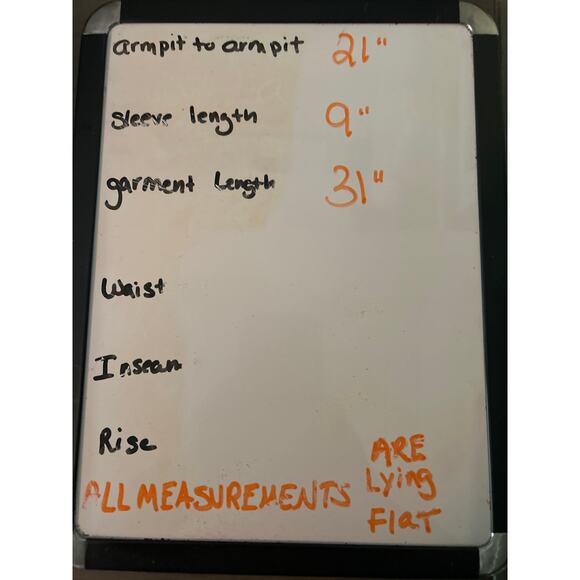 armpit to armpit 21"
Sleeve length 9"
garment Length 31"
Waist
Inseam
Rise
ALL MEASUREMENTS ARE
Lying
Flat